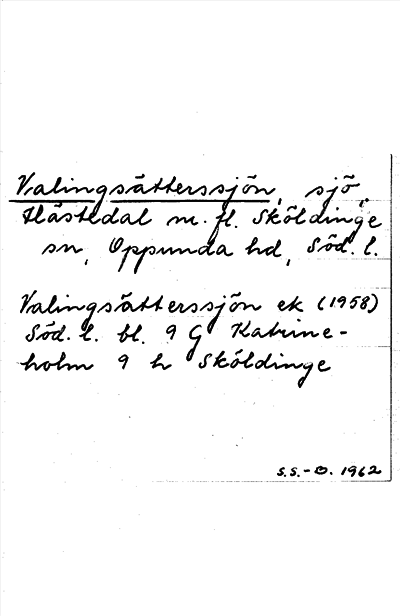 Valingsätterssjön, sjö,
Hästedal m. fl. Sköldinge
sn, Oppunda hd, Söd. l.
Valingsätterssjön ek (1958)
Söd. l. bl. 9 G Katrine-
holm 9 h Sköldinge
S.S.-Ö. 1962